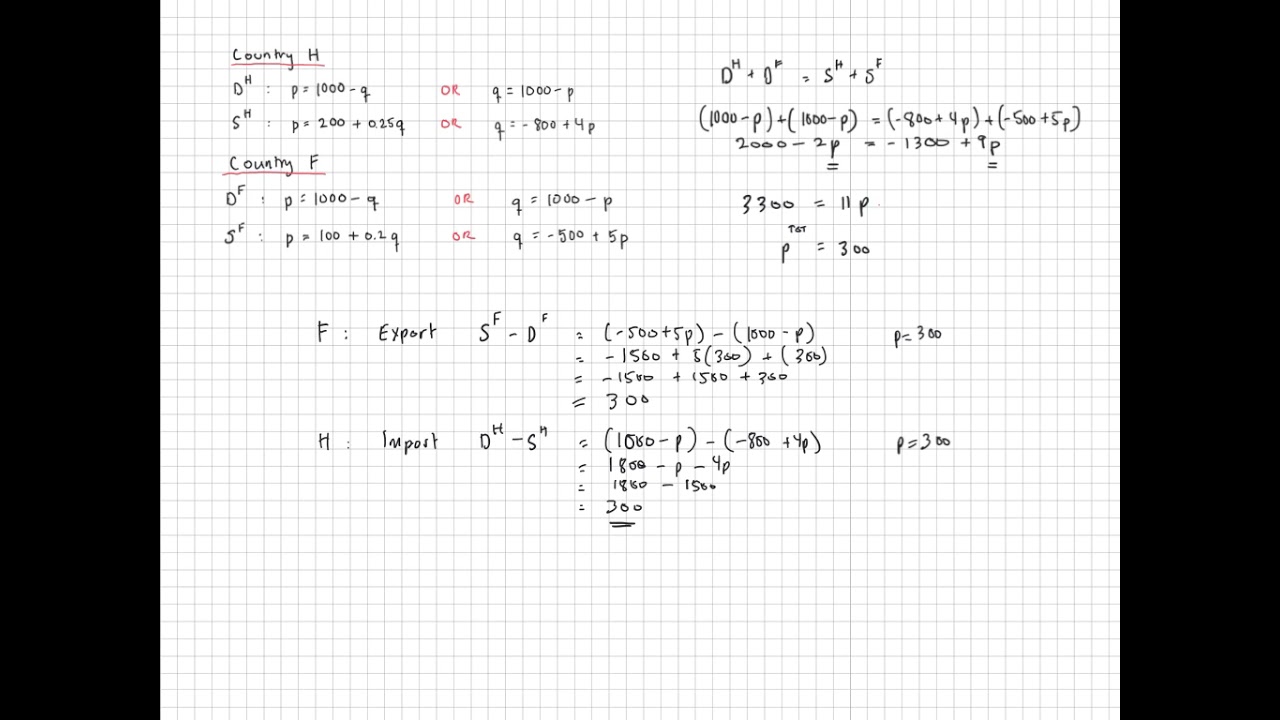 Country H
D^H : p = 1000 - q OR q = 1000 - p
S^H : p = 200 + 0.25q OR q = -800 + 4p
Country F
D^F : p = 1000 - q OR q = 1000 - p
S^F : p = 100 + 0.2q OR q = -500 + 5p
D^H + D^F = S^H + S^F
(1000 - p) + (1000 - p) = (-800 + 4p) + (-500 + 5p)
2000 - 2p = -1300 + 9p
3300 = 11p
p^TOT = 300
F : Export S^F - D^F = (-500 + 5p) - (1000 - p) p = 300
= -1500 + 5(300) + (300)
= -1500 + 1500 + 300
= 300
H : Import D^H - S^H = (1000 - p) - (-800 + 4p) p = 300
= 1800 - p - 4p
= 1800 - 1500
= 300